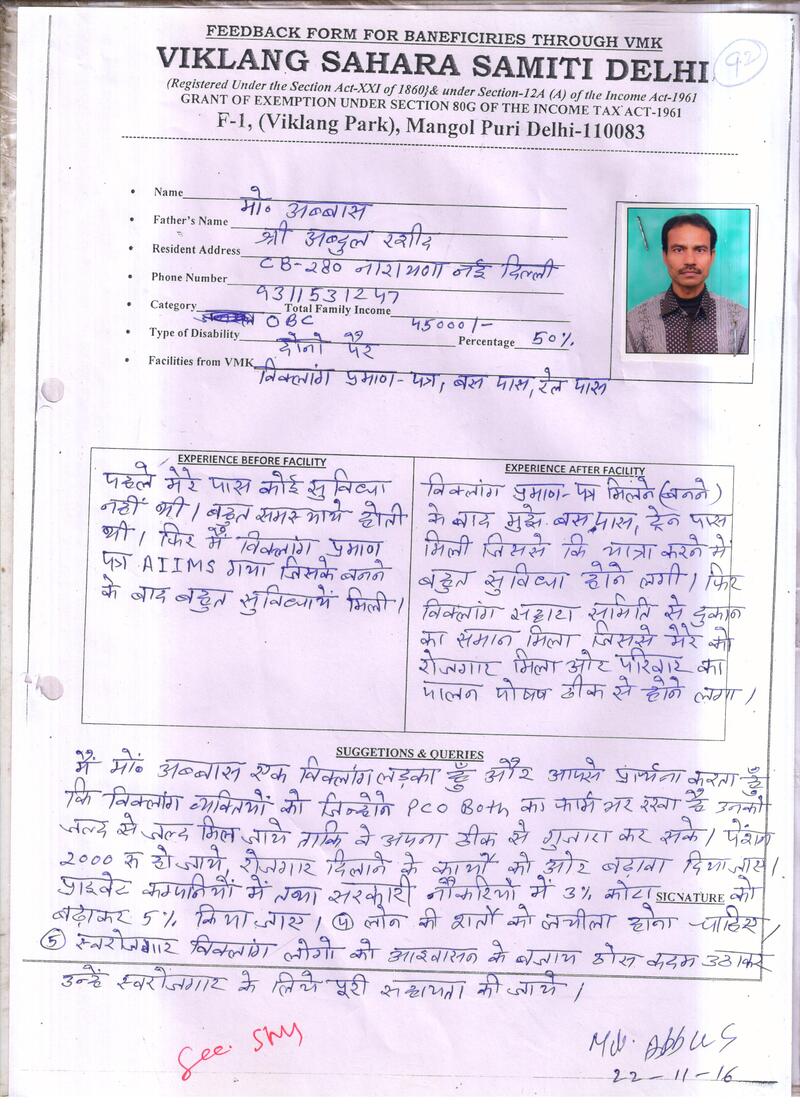 FEEDBACK FORM FOR BANEFICIRIES THROUGH VMK
VIKLANG SAHARA SAMITI DELHI
92
(Registered Under the Section Act-XXI of 1860}& under Section-12A (A) of the Income Act-1961
GRANT OF EXEMPTION UNDER SECTION 80G OF THE INCOME TAX ACT-1961
F-1, (Viklang Park), Mangol Puri Delhi-110083
• Name मो॰ अब्बास
• Father's Name श्री अब्दुल रशीद
• Resident Address CB-280 नारायणा नई दिल्ली
• Phone Number 9311531247
• Category OBC Total Family Income 45000/-
• Type of Disability दोनो पैर Percentage 50%
• Facilities from VMK विक्लांग प्रमाण-पत्र, बस पास, रेल पास
EXPERIENCE BEFORE FACILITY
पहले मेरे पास कोई सुविधा
नहीं थी। बहुत समस्यायें होती
थी। फिर मैं विक्लांग प्रमाण
पत्र AIIMS गया जिसके बनने
के बाद बहुत सुविधायें मिली।
EXPERIENCE AFTER FACILITY
विक्लांग प्रमाण-पत्र मिलने (बनने)
के बाद मुझे बस पास, ट्रेन पास
मिली जिससे कि यात्रा करने में
बहुत सुविधा होने लगी। फिर
विक्लांग सहारा समिति से दुकान
का समान मिला जिससे मेरे को
रोजगार मिला और परिवार का
पालन पोषष ठीक से होने लगा।
SUGGETIONS & QUERIES
मैं मों॰ अब्बास एक विक्लांग लड़का हूँ और आपसे प्रार्थना करता हूँ
कि विक्लांग व्यक्तियों को जिन्होने PCO Both का फार्म भर रखा है उनको
जल्द से जल्द मिल जाये ताकि वे अपना ठीक से गुजारा कर सके। पेंशन
2000 रू हो जाये, रोजगार दिलाने के कार्यों को ओर बढ़ावा दिया जाए।
प्राइवेट कम्पनियों में तथा सरकारी नौकरियों में 3% कोटा SIGNATURE को
बढ़ाकर 5% किया जाए। ④ लोन की शर्तो को लचीला होना चाहिए।
⑤ स्वरोजगार विक्लांग लोगो को आश्वासन के बजाय ठोस कदम उठाकर
उन्हें स्वरोजगार के लिये पूरी सहायता की जाये।
Md. Abbas
22-11-16